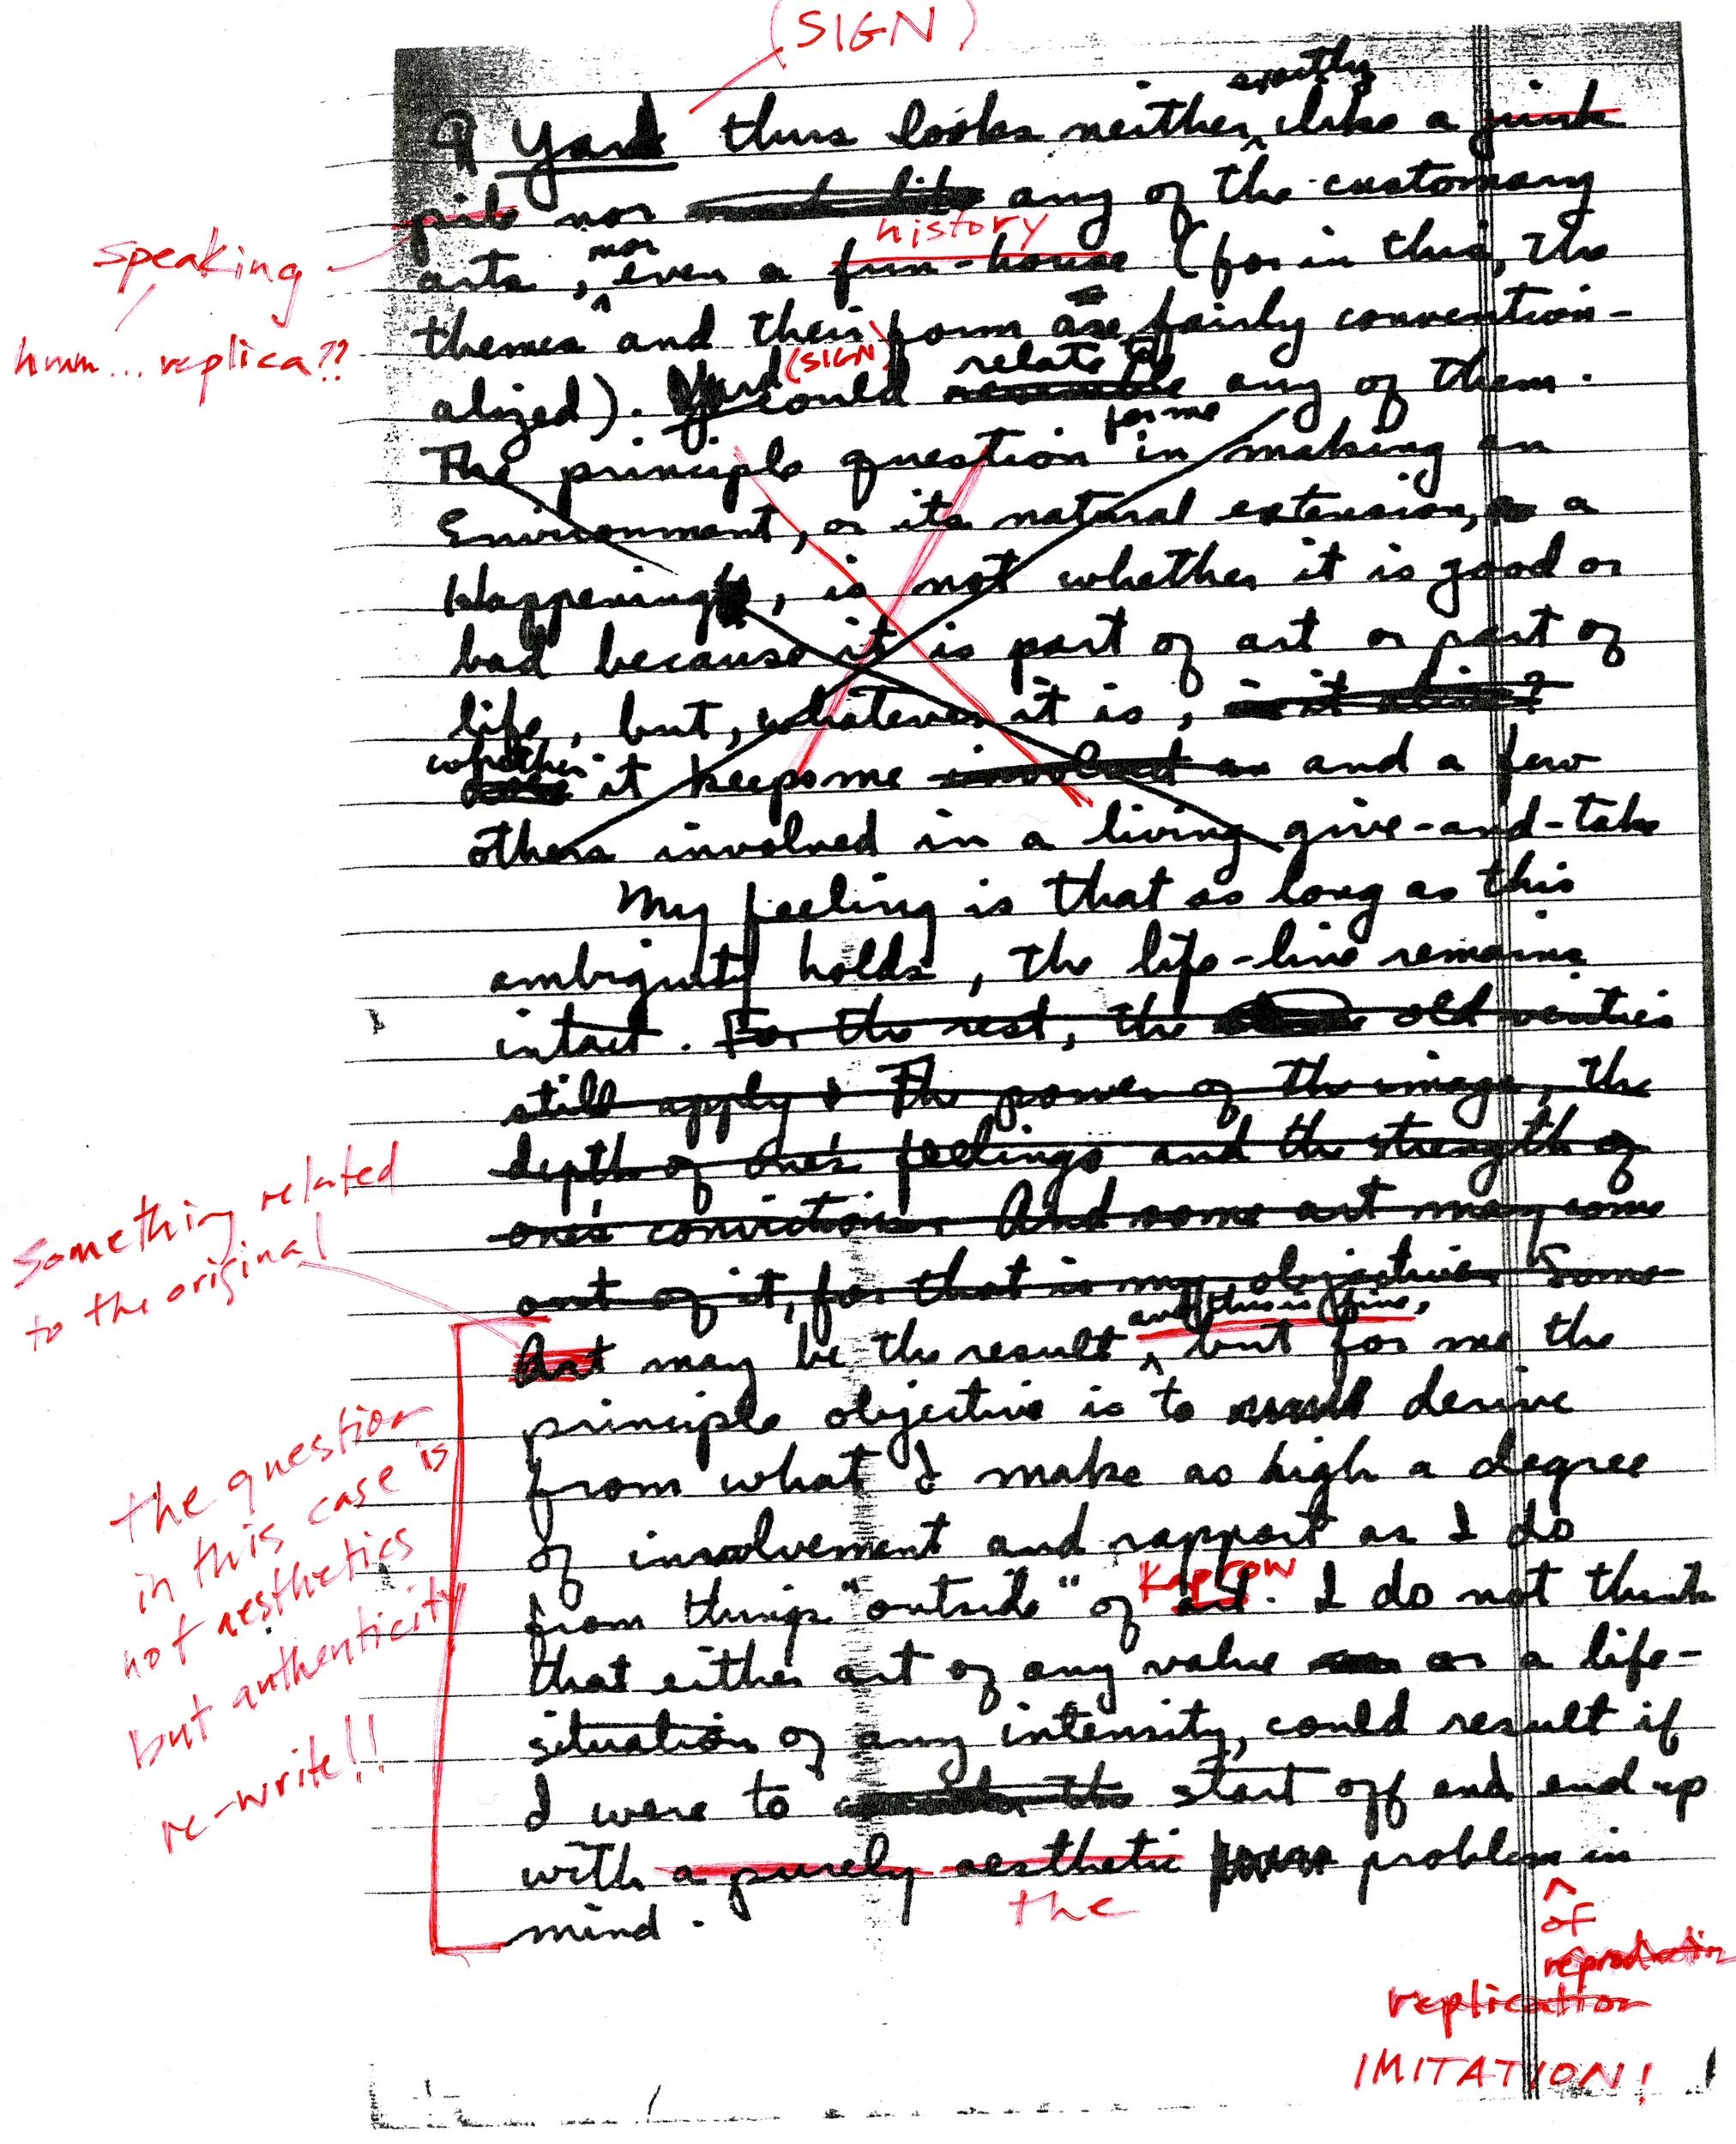 (SIGN)
exactly
¶ Yard thus looks neither like a junk
pile nor any of the customary
speaking
history
nor
arts, even a fun-house (for in this, the
hmm... replica??
themes and their form are fairly convention-
(SIGN)
relate to
alized). Yard could resemble any of them.
for me
The principle question in making an
Environment, or its natural extension, a
Happening, is not whether it is good or
bad because it is part of art or part of
life, but, whatever it is, is it alive?
whether
it keeps me involved and a few
others involved in a living give-and-take
My feeling is that as long as this
ambiguity holds, the life-line remains
intact. For the rest, the old verities
still apply: The power of the image, the
depth of one's feelings and the strength of
one's convictions. And some art may come
Something related
to the original
out of it, for that is my objective. Some
and this is fine,
Art may be the result, but for me the
principle objective is to derive
from what I make as high a degree
the question
in this case is
not aesthetics
but authenticity
re-write!!
of involvement and rapport as I do
Kaprow
from things "outside" of art. I do not think
that either art of any value or a life-
situation of any intensity, could result if
I were to start off and end up
with a purely aesthetic problem in
the
mind.
of
reproduction
replication
IMITATION!